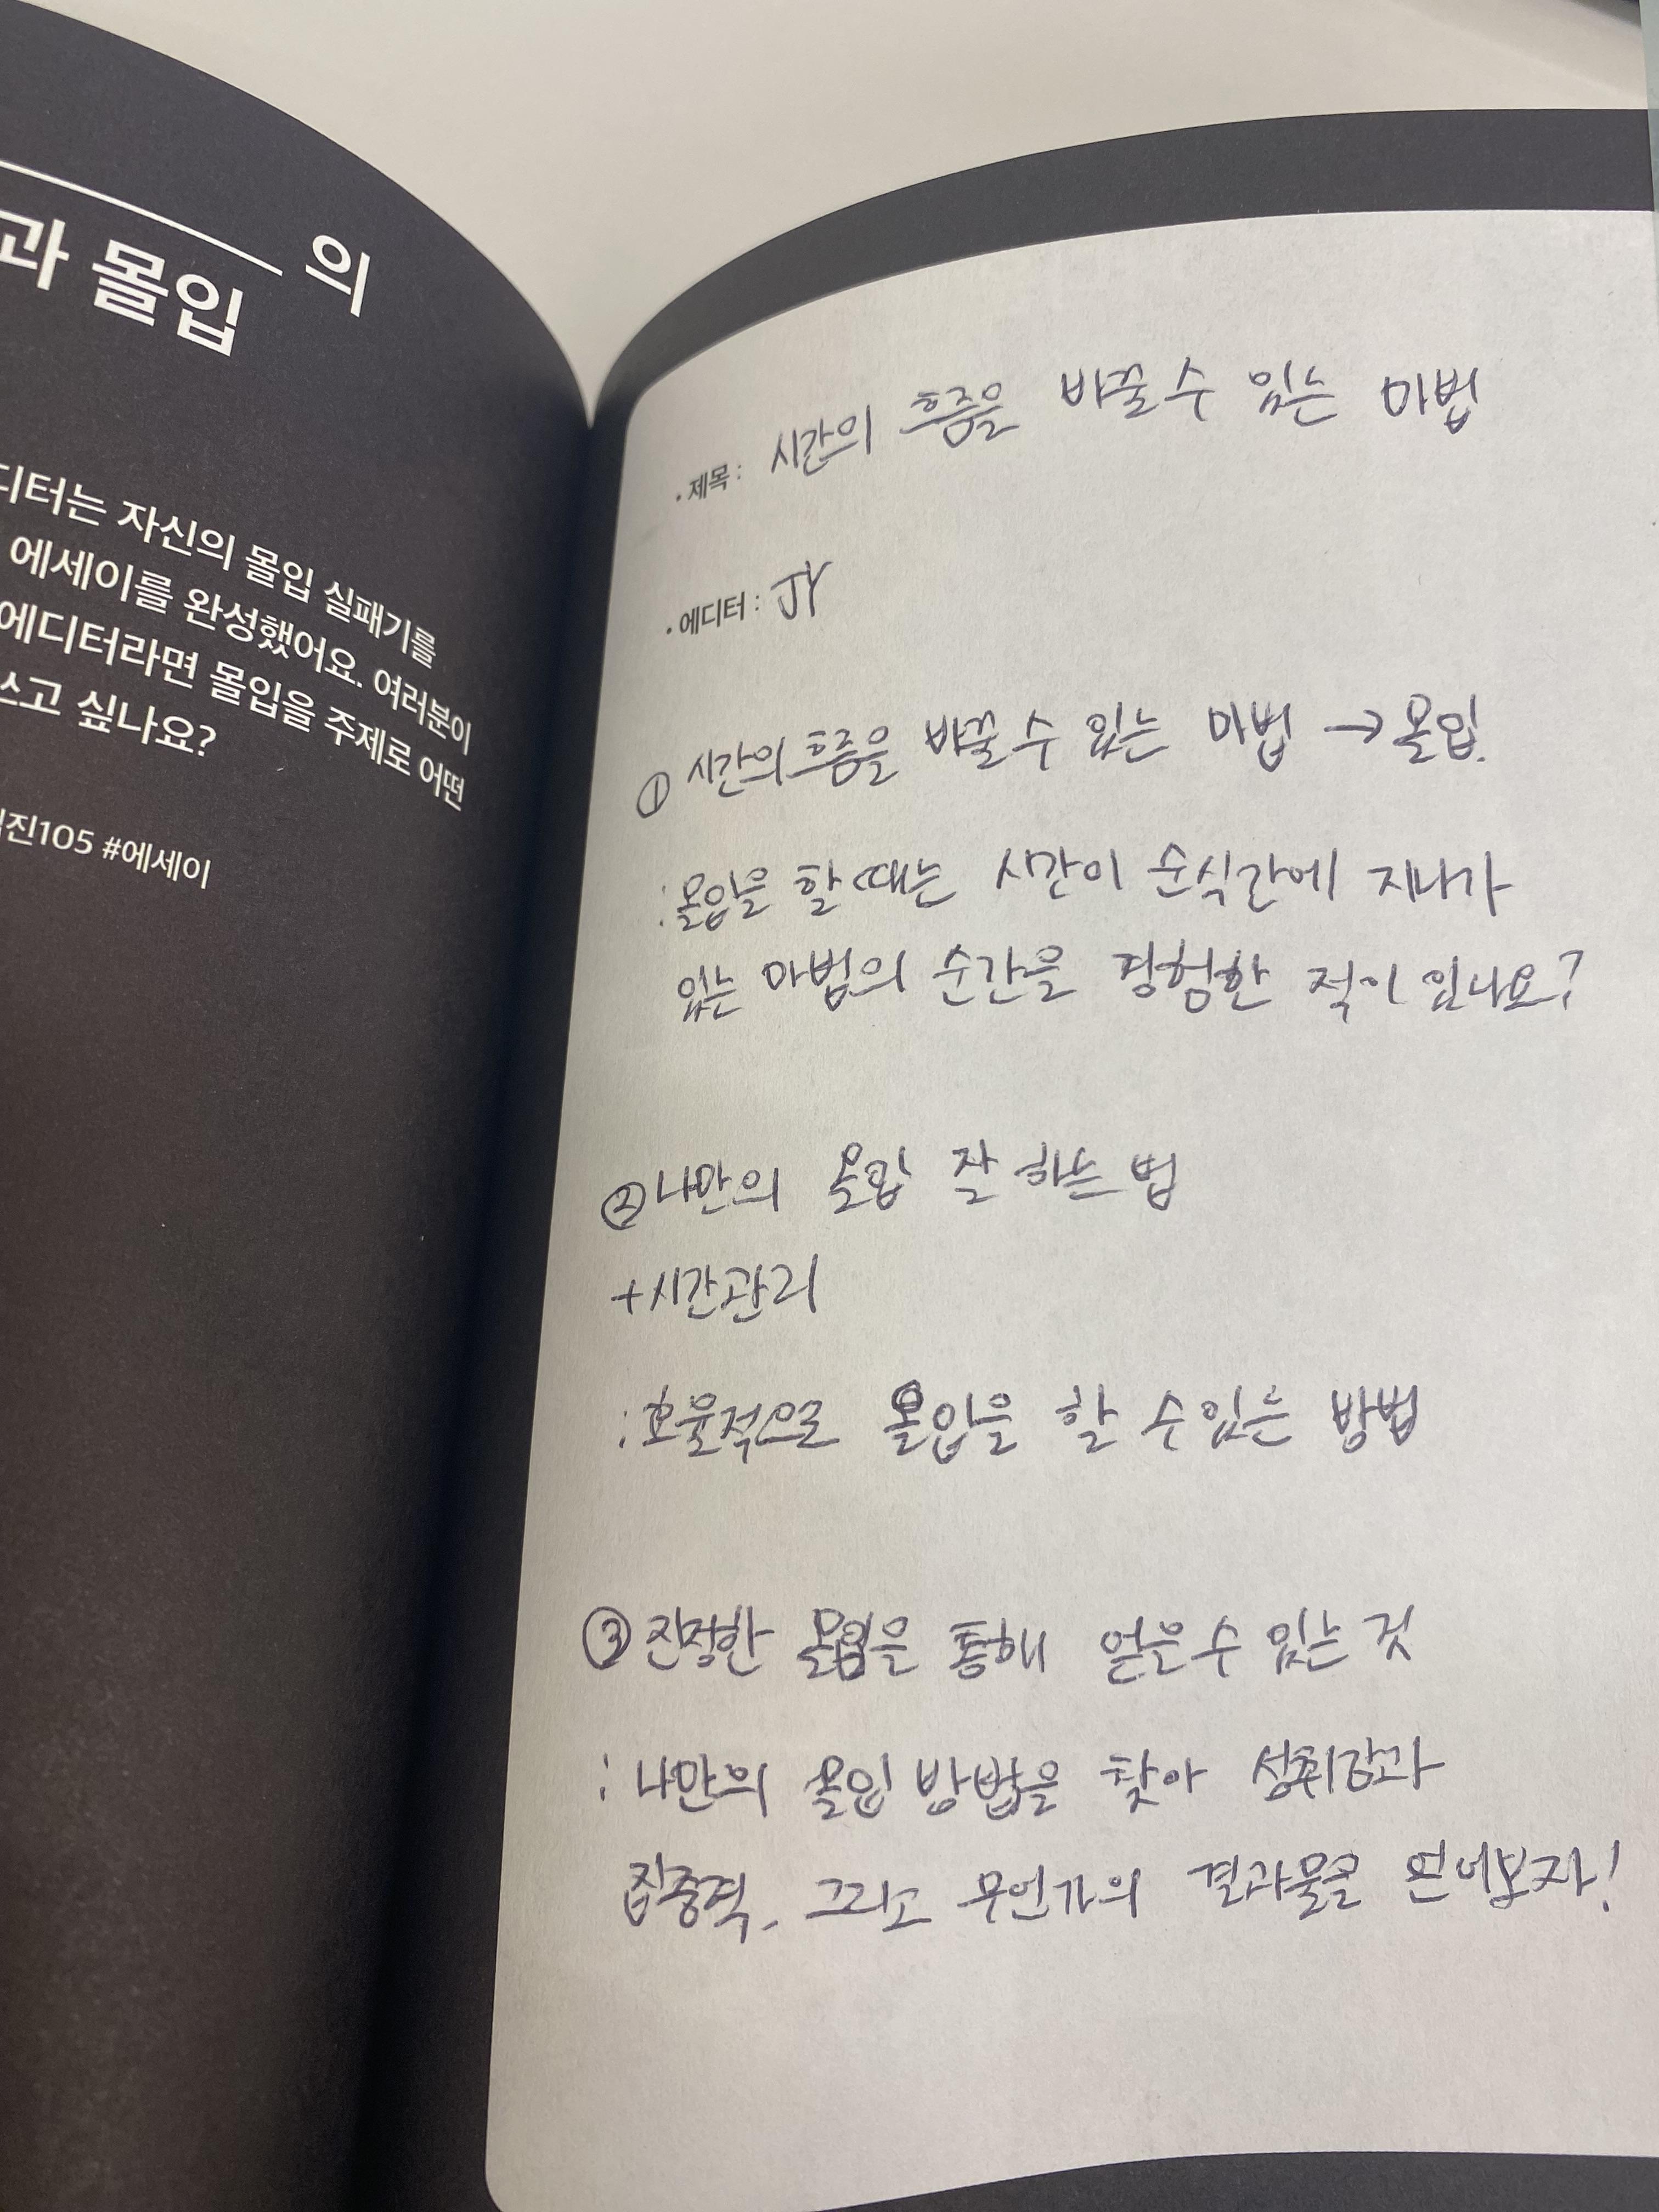 의
과 몰입
디터는 자신의 몰입 실패기를
에세이를 완성했어요. 여러분이
에디터라면 몰입을 주제로 어떤
쓰고 싶나요?
진105 #에세이
• 제목 : 시간의 흐름을 바꿀 수 있는 마법
• 에디터 : JY
① 시간의 흐름을 바꿀 수 있는 마법 → 몰입.
: 몰입을 할 때는 시간이 순식간에 지나가
있는 마법의 순간을 경험한 적이 있나요?
② 나만의 몰입 잘 하는 법
+시간관리
: 효율적으로 몰입을 할 수 있는 방법
③ 진정한 몰입을 통해 얻을 수 있는 것
: 나만의 몰입 방법을 찾아 성취감과
집중력, 그리고 무언가의 결과물을 얻어보자!